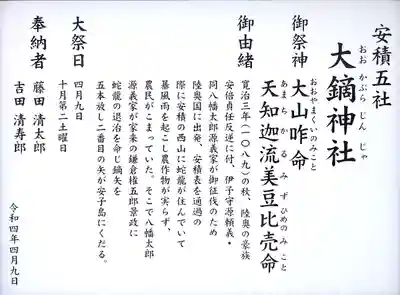 安積五社
大鏑神社
おお かぶら じん じゃ
御祭神
大山咋命
おおやまくいのみこと
天知迦流美豆比売命
あまちかるみずひめのみこと
御由緒
寛治三年（一〇八九）の秋、陸奥の豪族
安倍貞任反逆に付、伊予守源頼義・
同八幡太郎源義家が御征伐のため
陸奥国に出発、安積表を通過の
際に安積の西山に蛇龍が住んでいて
暴風雨を起こし農作物が実らず、
農民がこまっていた。そこで八幡太郎
源義家が家来の鎌倉権五郎景政に
蛇龍の退治を命じ鏑矢を
五本放し二番目の矢が安子島にくだる。
大祭日
四月九日
十月第二土曜日
奉納者
藤田 清太郎
吉田 清寿郎
令和四年四月九日